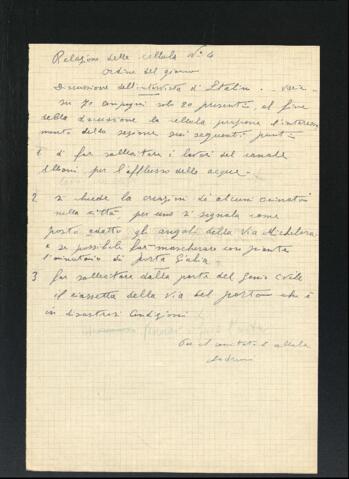 Relazione della cellula N° 4
Ordine del giorno
Discussione dell'intervista d'Stalin . . varie
su 70 compagni solo 20 presenti, al fine
della discussione la cellula propone l'interessa-
mento della sezione sui seguenti punti
1 di far sollecitare i lavori del canale
Albani, per l'afflusso delle acque
2 si chiede la creazione di alcuni orinatoi
nella città, per uno si segnala come
posto adatto gli angoli della Via Michelera
e se possibile far mascherare con piante
l'orinatoio di porta Giulia
3 far sollecitare dalla parte del Genio Civile
il riassetto della via del porto che è
in disastrose condizioni
Per il comitato di cellula